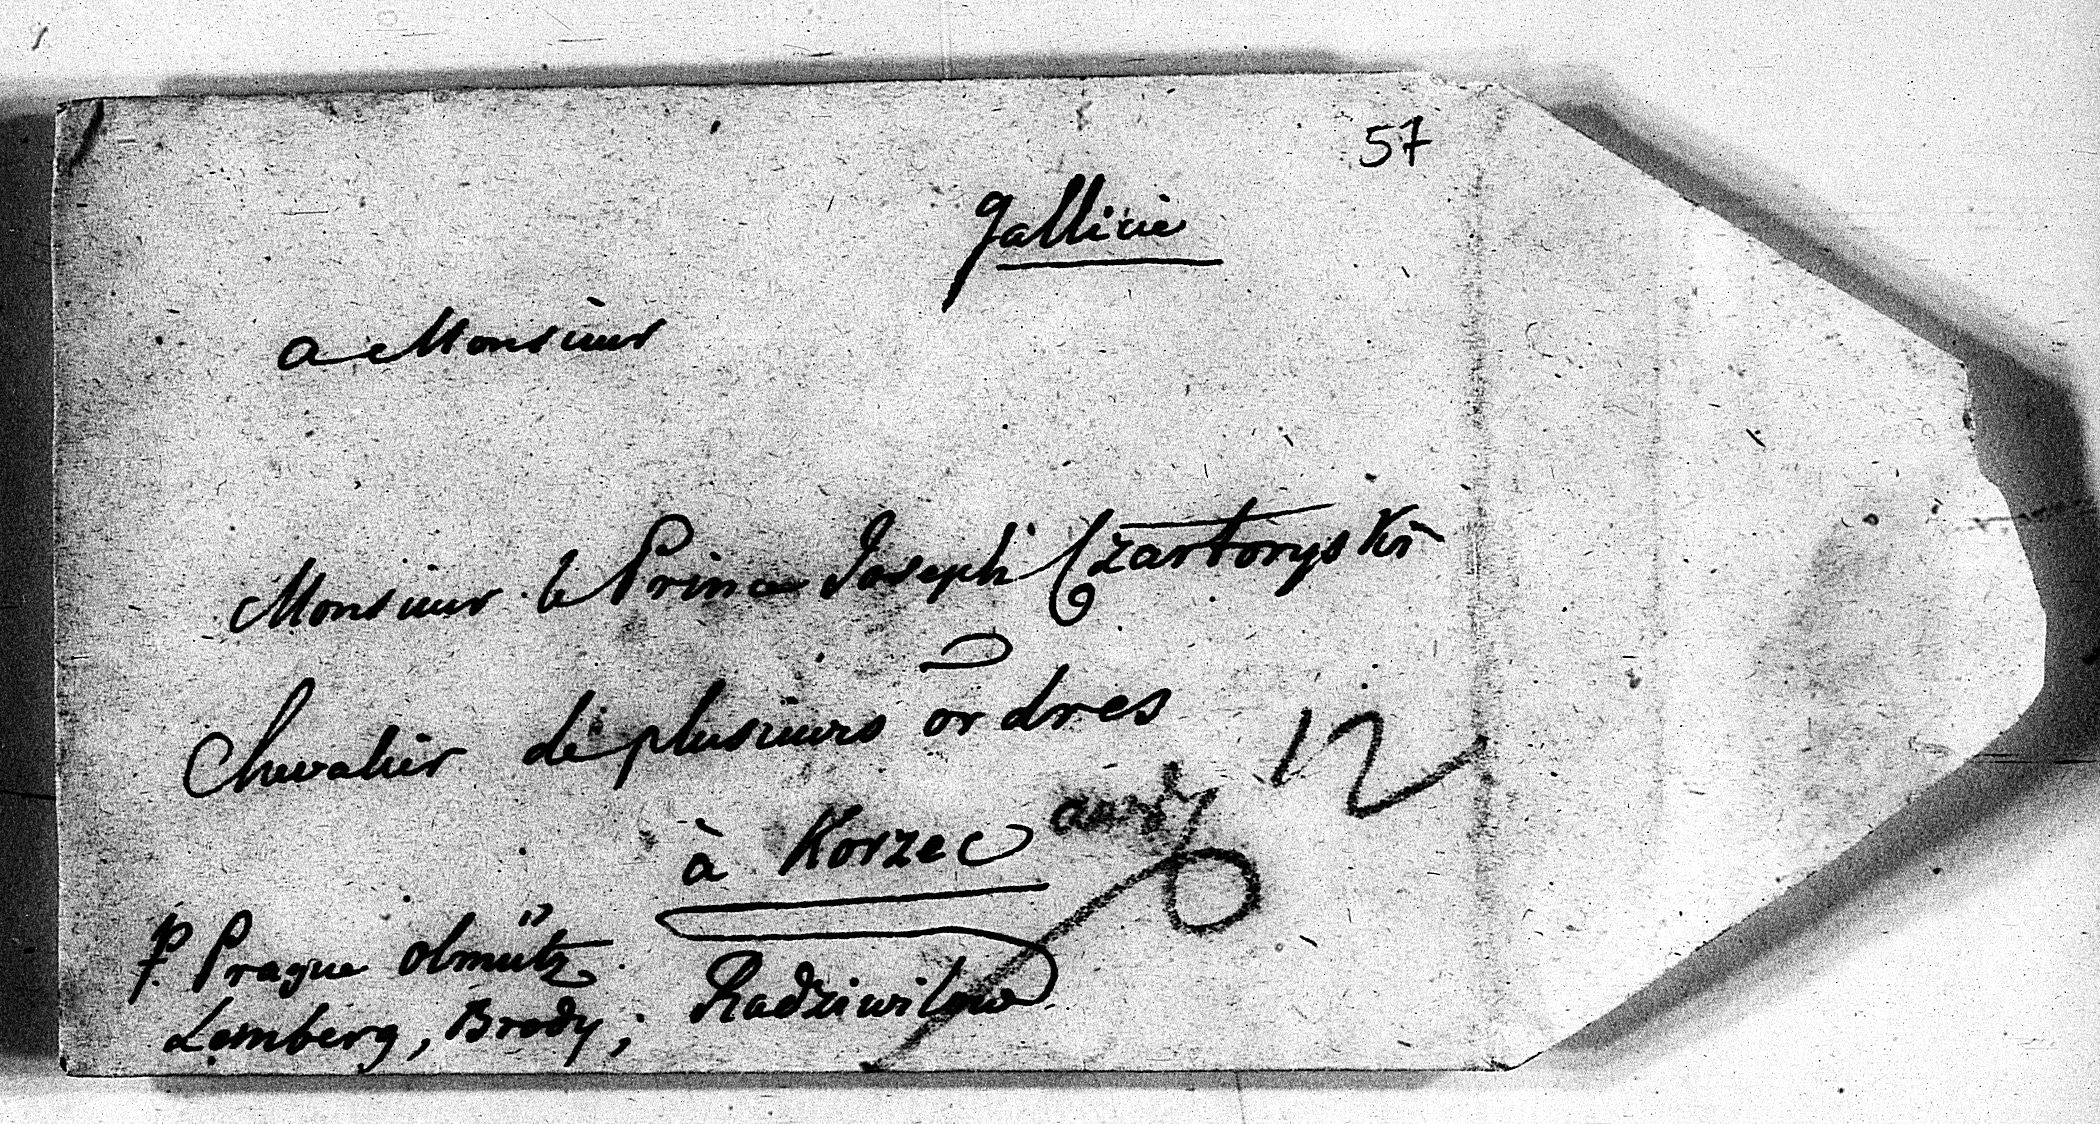 57
gallicie
a Monsieur
Monsieur le Prince Joseph Czartoryski
Chevalier de plusieurs ordres
à Korzec
12
p. Prague Olmütz
Lemberg, Brody; Radziwilow